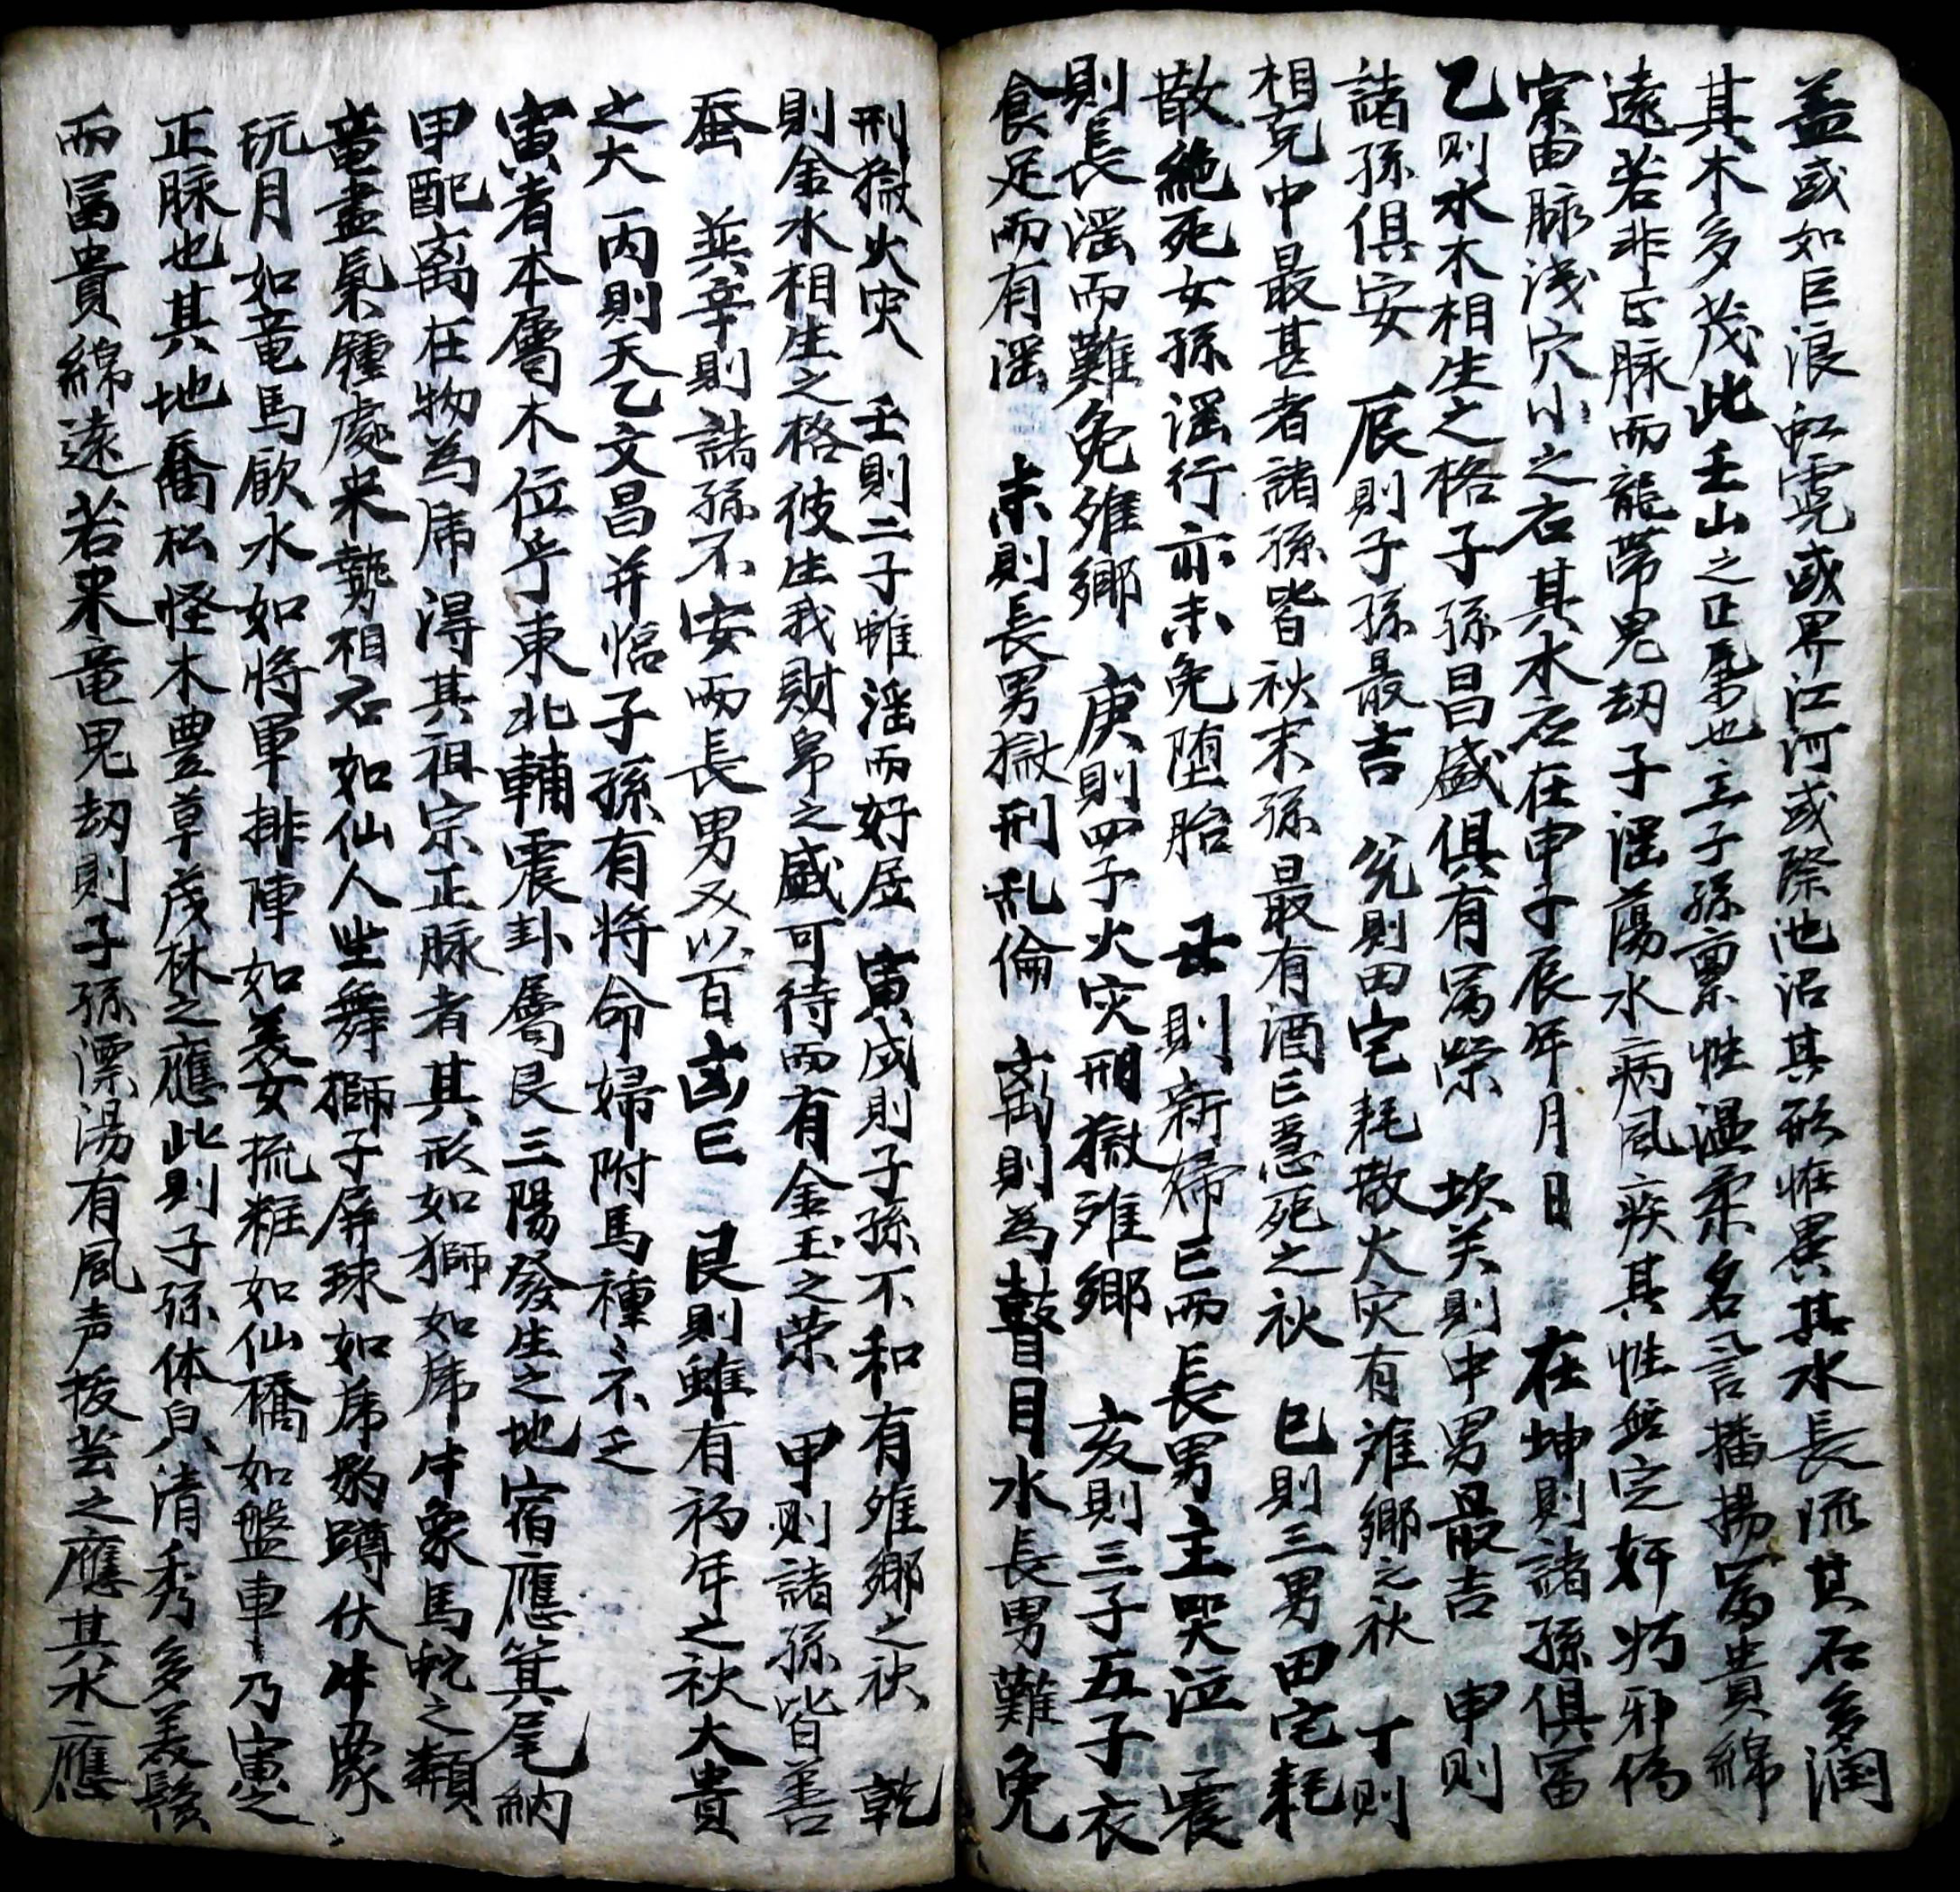 盖或如巨浪虹霓或界江河或際池沼其形恠異其水長流其石多潤
其木多茂此壬山之正氣也主子孫禀性温柔名言播揚富貴綿
遠若非正脉而龍帶鬼刼子滛蕩水病風疾其性無定奸朽邪偽
窠由脉浅穴小之右其水石在申子辰年月日 在坤則諸孫俱富
乙则水木相生之格子孫昌盛俱有富榮 坎关則中男最吉 申则
諸孫俱安 辰則子孫最吉 兊則田宅耗散火灾有雉鄉之秋 丁则
相克中最甚者諸孫皆秋末孫最有酒亡惡死之秋 巳則三男田宅耗
散絶死女孫滛行亦未免堕胎 丑則新婦亡而長男主哭泣 震
則長滛而難免雉鄉 庚則四子火灾刑獄雉鄉 亥則三子五子衣
食足而有滛 未則長男獄刑乱倫 离則為瞽目水長男難免
刑獄火灾 壬則二子雖滛而好居 寅戌則子孫不和有雉鄉之秋 乾
則金水相生之格彼生我財帛之盛可待而有金玉之荣 甲则諸孫皆善
蚕 巽辛則諸孫不安而長男又以百凶亡 艮則雖有禍年之秋大貴
之大 丙則天乙文昌并临子孫有将命婦附馬種〻不乏
寅者本屬木位乎東北輔震卦屬艮三陽發生之地宿應箕尾納
甲配离在物為虎得其祖宗正脉者其形如獅如虎牛象馬蛇之類
竜盡氣鍾處来勢相石如仙人坐舞獅子屏球如虎豹蹲伏牛象
玩月如竜馬飮水如将軍排陣如美女梳粧如仙橋如盤車乃寅之
正脉也其地喬松怪木豊草茂林之應此則子孫体臭清秀多美髯
而冨貴綿遠若来竜鬼刼則子孫漂湯有風声拨芸之應其水應